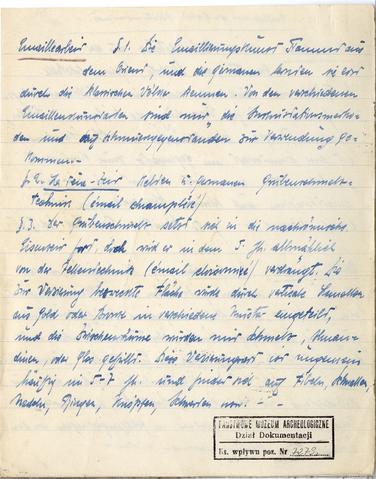 Emaillearbeit § 1. Die Emaillierungskunst stammt aus
dem Orient, und die Germanen lernten sie erst
durch die klassischen Völker kennen. Von den verschiedenen
Emaillierungsarten sind nur die
den und auf Schmuckgegenständen zur Verwendung ge-
kommen.-
§. 2. La Tène-Zeit Kelten u. Germanen Grubenschmelz-
technik (émail champlevé)
§. 3. Der Grubenschmelz setzt sich in die nachrömische
Eisenzeit fort, doch wird er in dem 5. Jh. allmählich
von der Zellentechnik (émail cloisonné) verdrängt. Die
zur Verzierung bezweckte Fläche wurde durch vertikale Lamellen
aus Gold oder Bronze in verschiedene Muster eingeteilt,
und die Zwischenräume wurden mit Schmelz, Alman-
dinen, oder Glas gefüllt. Diese Verzierungsart war ungemein
häufig im 5-7 Jh. und findet sich auf Fibeln, Schnallen,
Nadeln, Ringen, Knöpfen, Schwerten vor. - -
PAŃSTWOWE MUZEUM ARCHEOLOGICZNE
Dział Dokumentacji
Ks. wpływu poz. Nr